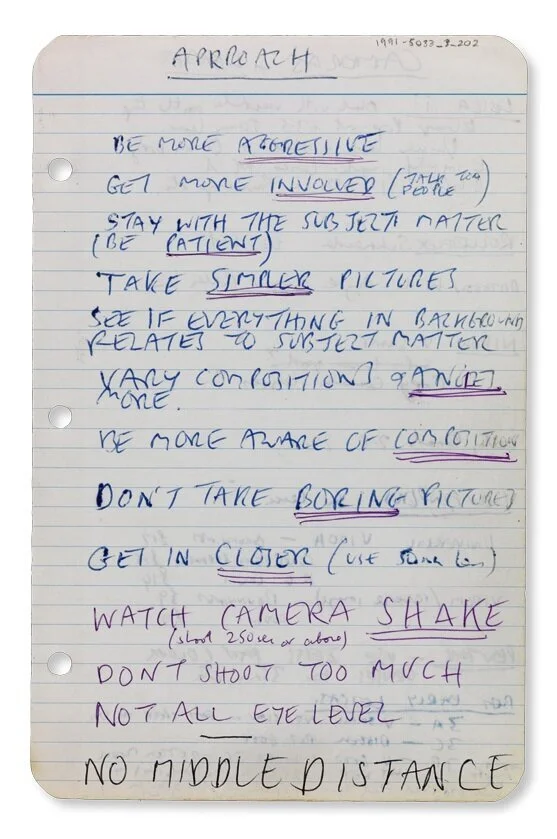 1991-5033_9_202
APRROACH
BE MORE AGGRESSIVE
GET MORE INVOLVED (TALK TOO
PEOPLE)
STAY WITH THE SUBJECT MATTER
(BE PATIENT)
TAKE SIMPLER PICTURES
SEE IF EVERYTHING IN BACKGROUND
RELATES TO SUBJECT MATTER
VARY COMPOSITIONS & ANGLES
MORE.
BE MORE AWARE OF COMPOSITION
DON'T TAKE BORING PICTURES
GET IN CLOSER (USE 50mm lens)
WATCH CAMERA SHAKE
(shoot 250sec or above)
DON'T SHOOT TOO MUCH
NOT ALL EYE LEVEL
NO MIDDLE DISTANCE